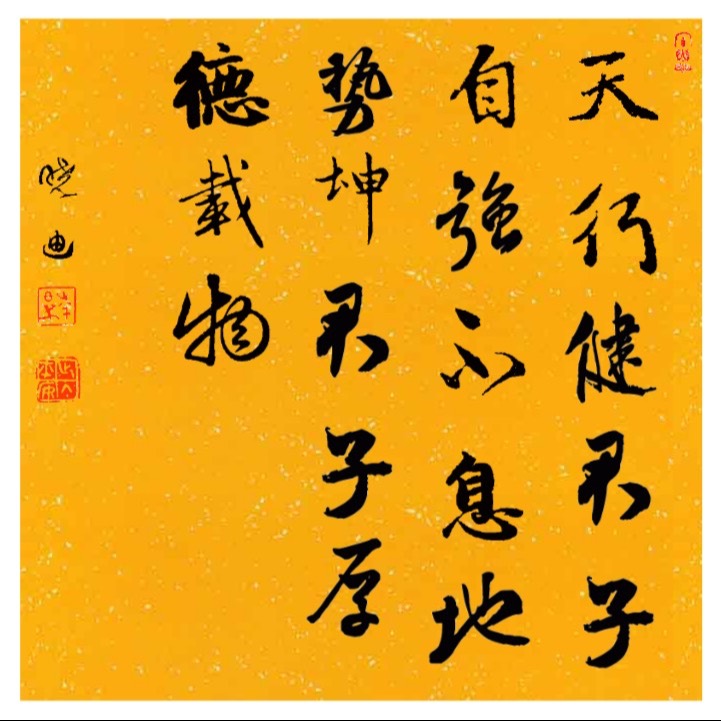 天行健君子
自強不息地
勢坤君子厚
德載物
曉迪